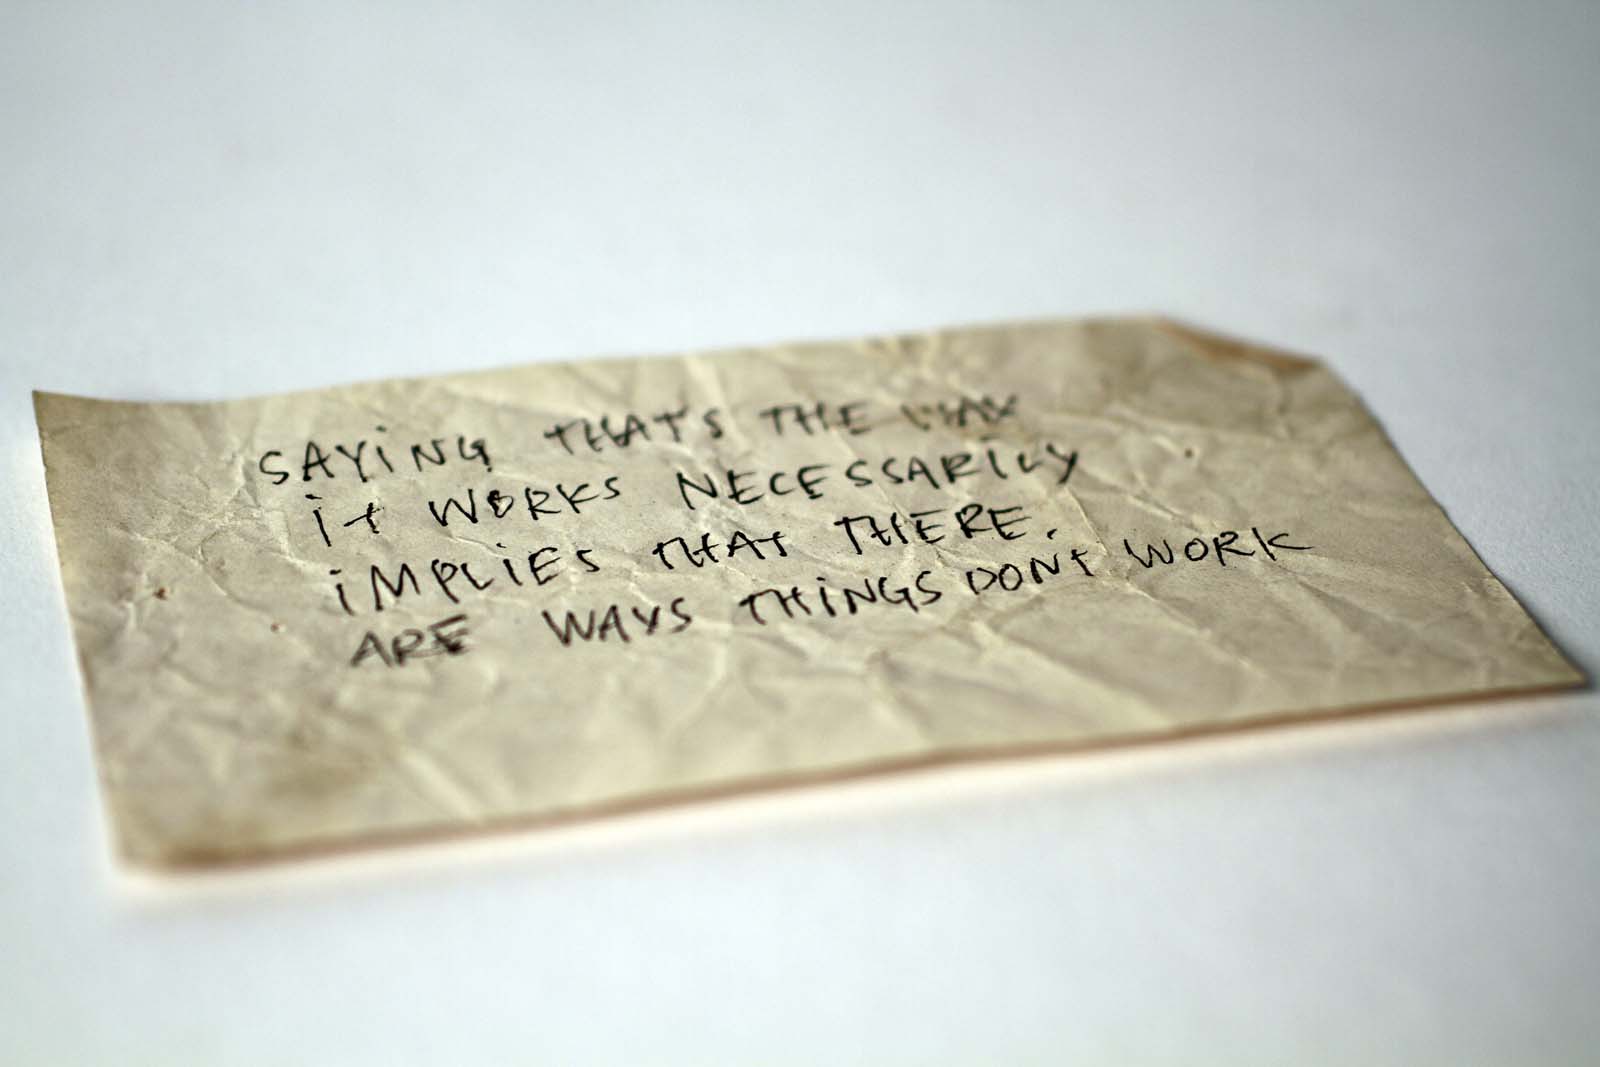 SAYiNG THAT'S THE WAY
it WORKS NECESSARiLY
iMPLiES THAT THERE.
ARE WAYS THiNGS DONt WORK